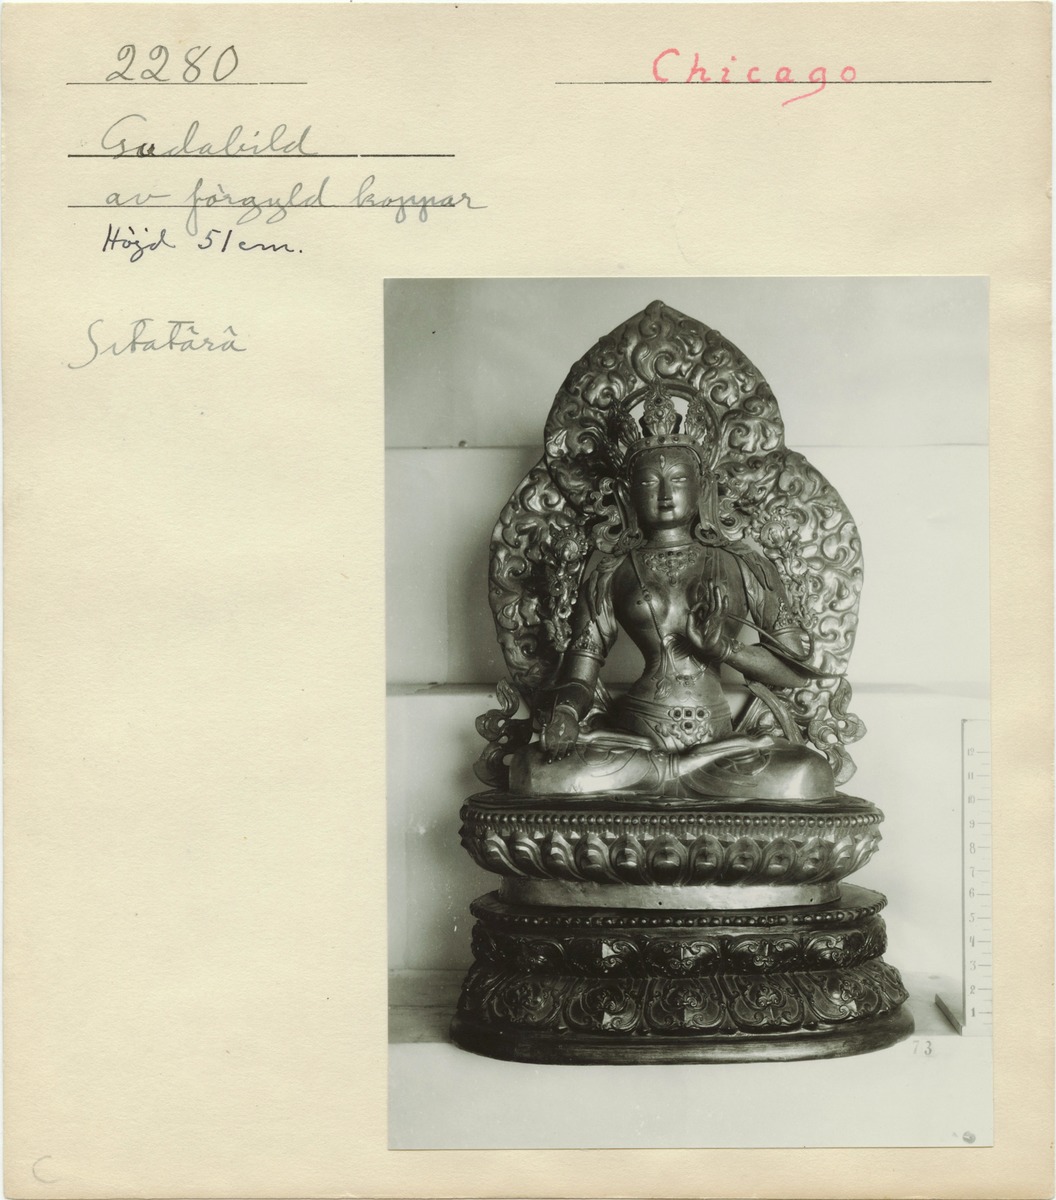 2280
Chicago
Gudabild
av förgyld koppar
Höjd 51 cm.
Sitatârâ
12
11
10
9
8
7
6
5
4
3
2
1
73
C